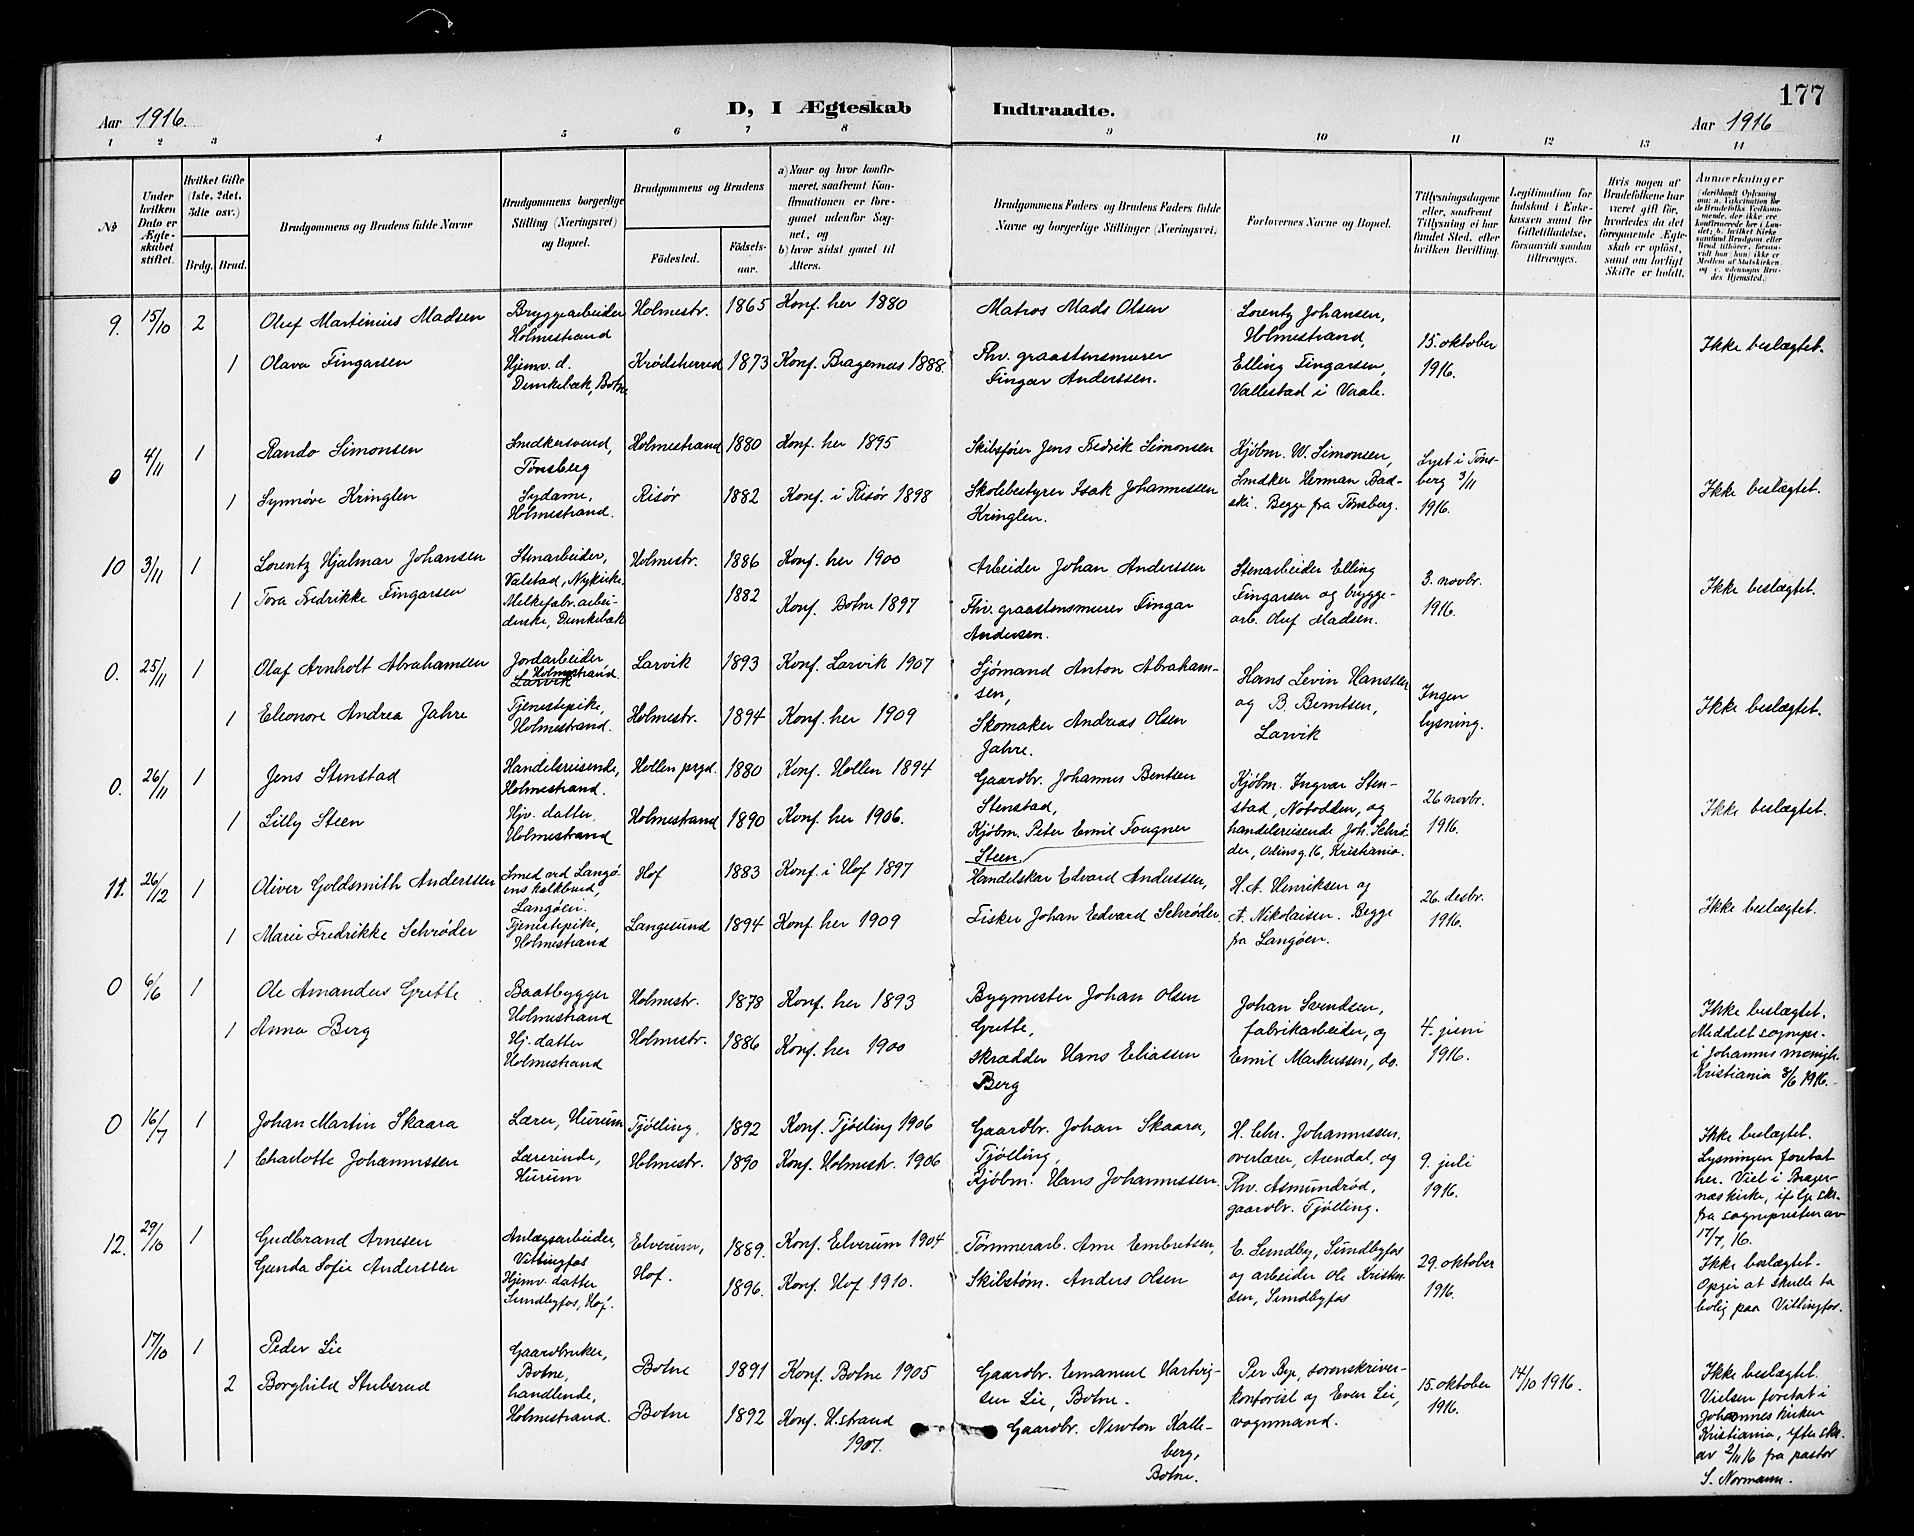 177
Aar 1916.
D, I Ægteskab Indtraadte.
Aar 1916
1 2 3 4 5 6 7 8 9 10 11 12 13 14
№
Under hvilken Dato er Ægteskabet stiftet.
Hvilket Gifte (1ste, 2det, 3die osv.)
Brdg. Brud.
Brudgommens og Brudens fulde Navne
Brudgommens borgerlige Stilling (Næringsvei) og Bopæl.
Brudgommens og Brudens
Fødested. Fødselsaar.
a) Naar og hvor konfirmeret, saafremt Konfirmationen er foregaaet udenfor Sognet, og
b) hvor sidst gaaet til Alters.
Brudgommens Faders og Brudens Faders fulde Navne og borgerlige Stillinger (Næringsvei).
Forlovernes Navne og Bopæl.
Tillysningsdagene eller, saafremt Tillysning ei har fundet Sted, efter hvilken Bevilling.
Legitimation for Indskud i Enkekassen samt for Giftetilladelse, forsaavidt saadan tiltrænges.
Hvis nogen af Brudefolkene har været gift før, hvorledes da det foregaaende Ægteskab er opløst, samt om lovligt Skifte er holdt.
Anmærkninger
9. 15/10 2 Oluf Martinius Madsen Bryggearbeider Holmestrand Holmestr. 1865 Konf. her 1880 Matros Mads Olsen Lorentz Johansen, Holmestrand, 15. oktober 1916. Ikke beslægtet.
1 Olava Fingarsen Hjemv. d. Dunkebæk, Botne Krødsherred 1873 Konf. Bragernes 1888. Fhv. graastensmurer Fingar Anderssen. Elling Fingarsen, Vallestad i Vaale.
0 4/11 1 Rando Simonsen Smedkersvend, Tønsberg Holmestrand 1880 Konf. her 1895 Skibsfører Jens Fredrik Simonsen Kjøbm. W. Simonsen, Lyst i Tønsberg 3/11 1916. Ikke beslægtet.
1 Synnøve Kringlen Sydame, Holmestrand. Risør 1882 Konf. i Risør 1898 Skolebestyrer Isak Johannessen Kringlen. Smedker Herman Badski. Begge fra Tønsberg.
10 3/11 1 Lorentz Hjalmar Johansen Stenarbeider, Valstad, Nykirke. Holmestr. 1886 Konf. her 1900 Arbeider Johan Anderssen Stenarbeider Elling Fingarsen og bryggearb. Oluf Madsen. 3. novbr. 1916. Ikke beslægtet.
1 Tora Fredrikke Fingarsen Melkefabr.arbeiderske, Dunkebæk 1882 Konf. Botne 1897 Fhv. graastensmurer Fingar Andersen.
0. 25/11 1 Olaf Arnholt Abrahamsen Jordarbeider Larvik Holmestrand. Larvik 1893 Konf. Larvik 1907 Sjømand Anton Abrahamsen, Hans Levin Hanssen og B. Berntsen, Larvik Ingen lysning. Ikke beslægtet.
1 Eleonore Andrea Jahre Tjenestepike, Holmestrand. Holmestr. 1894 Konf. her 1909 Skomaker Andreas Olsen Jahre.
0. 26/11 1 Jens Stenstad Handelsreisende, Holmestrand. Hollen prgd. 1880 Konf. Hollen 1894 Gaardbr. Johannes Bentsen Stenstad, Kjøbm. Ingvar Stenstad, Notodden, og handelsreisende Joh. Schrøder, Odinsg. 16, Kristiania. 26 novbr. 1916. Ikke beslægtet.
1 Lilly Steen Hjv. datter, Holmestrand Holmestrand 1890 Konf. her 1906. Kjøbm. Peter Emil Fougner Steen.
11. 26/12 1 Oliver Goldsmith Anderssen Smed ved Langøens kalkbrud, Langøen. Hof 1883 Konf. i Hof 1897 Handelskar Edvard Anderssen, H. A. Henriksen og A. Nikolaisen. Begge fra Langøen. 26. desbr. 1916. Ikke beslægtet.
1 Marie Fredrikke Schrøder Tjenestepike, Holmestrand Langesund 1894 Konf. her 1909 Fisker Johan Edvard Schrøder.
0 6/6 1 Ole Amandus Grette Baatbygger Holmestrand Holmestr. 1878 Konf. her 1893 Bygmester Johan Olsen Grette, Johan Svendsen, fabrikarbeider, og Emil Markussen, do. 4. juni 1916. Ikke beslægtet. Meddelt sognepr. i Johannes menigh. Kristiania 3/6 1916.
1 Anna Berg Hj. datter Holmestrand Holmestr. 1886 Konf. her 1900 Skrædder Hans Eliassen Berg
0 16/7 1 Johan Martin Skaara Lærer, Hurum Tjølling. 1892 Konf. Tjølling 1906 Gaardbr. Johan Skaara, Tjølling, H. Chr. Johannessen, overlærer, Arendal, og Thv. Asmundrød, gaardbr. Tjølling. 9. juli 1916. Ikke beslægtet. Lysningen foretat her. Viet i Bragernæs kirke, ifølge skr. fra sognepresten av 17/7, 16.
1 Charlotte Johannessen Lærerinde, Hurum Holmestr. 1890 Konf. Holmestr. 1906 Kjøbm. Hans Johannessen.
12. 29/10 1 Gudbrand Arnesen Anlægsarbeider, Vittingfos Elverum, 1889. Konf. Elverum 1904 Tømmerarb. Arne Embretsen, E. Sundby, Sundbyfos og arbeider Ole Kristensen, Sundbyfos 29. oktober 1916. Ikke beslægtet. Opgir at skulle ta bolig paa Vittingfos.
Gunda Sofie Anderssen Hjemv. datter Sundbyfos, Hof. Hof. 1896. Konf. Hof 1910. Skibstøm. Anders Olsen
17/10 1 Peder Lie Gaardbruker, Botne, Botne 1891 Konf. Botne 1905 Gaardbr. Emanuel Hartvigsen Lie, Botne. Per Bye, sorenskriverkontorist og Even Lie, vognmand. 15. oktober 1916. 14/10 1916. Ikke beslægtet. Vielsen foretat i Johanneskirken Kristiania, efter skr. av 2/11 16 fra pastor S. Normann.
2 Borghild Stubsrud handlende, Holmestrand. Botne 1892 Konf. H.strand 1907. Gaardbr. Newton Kalleberg, Botne.